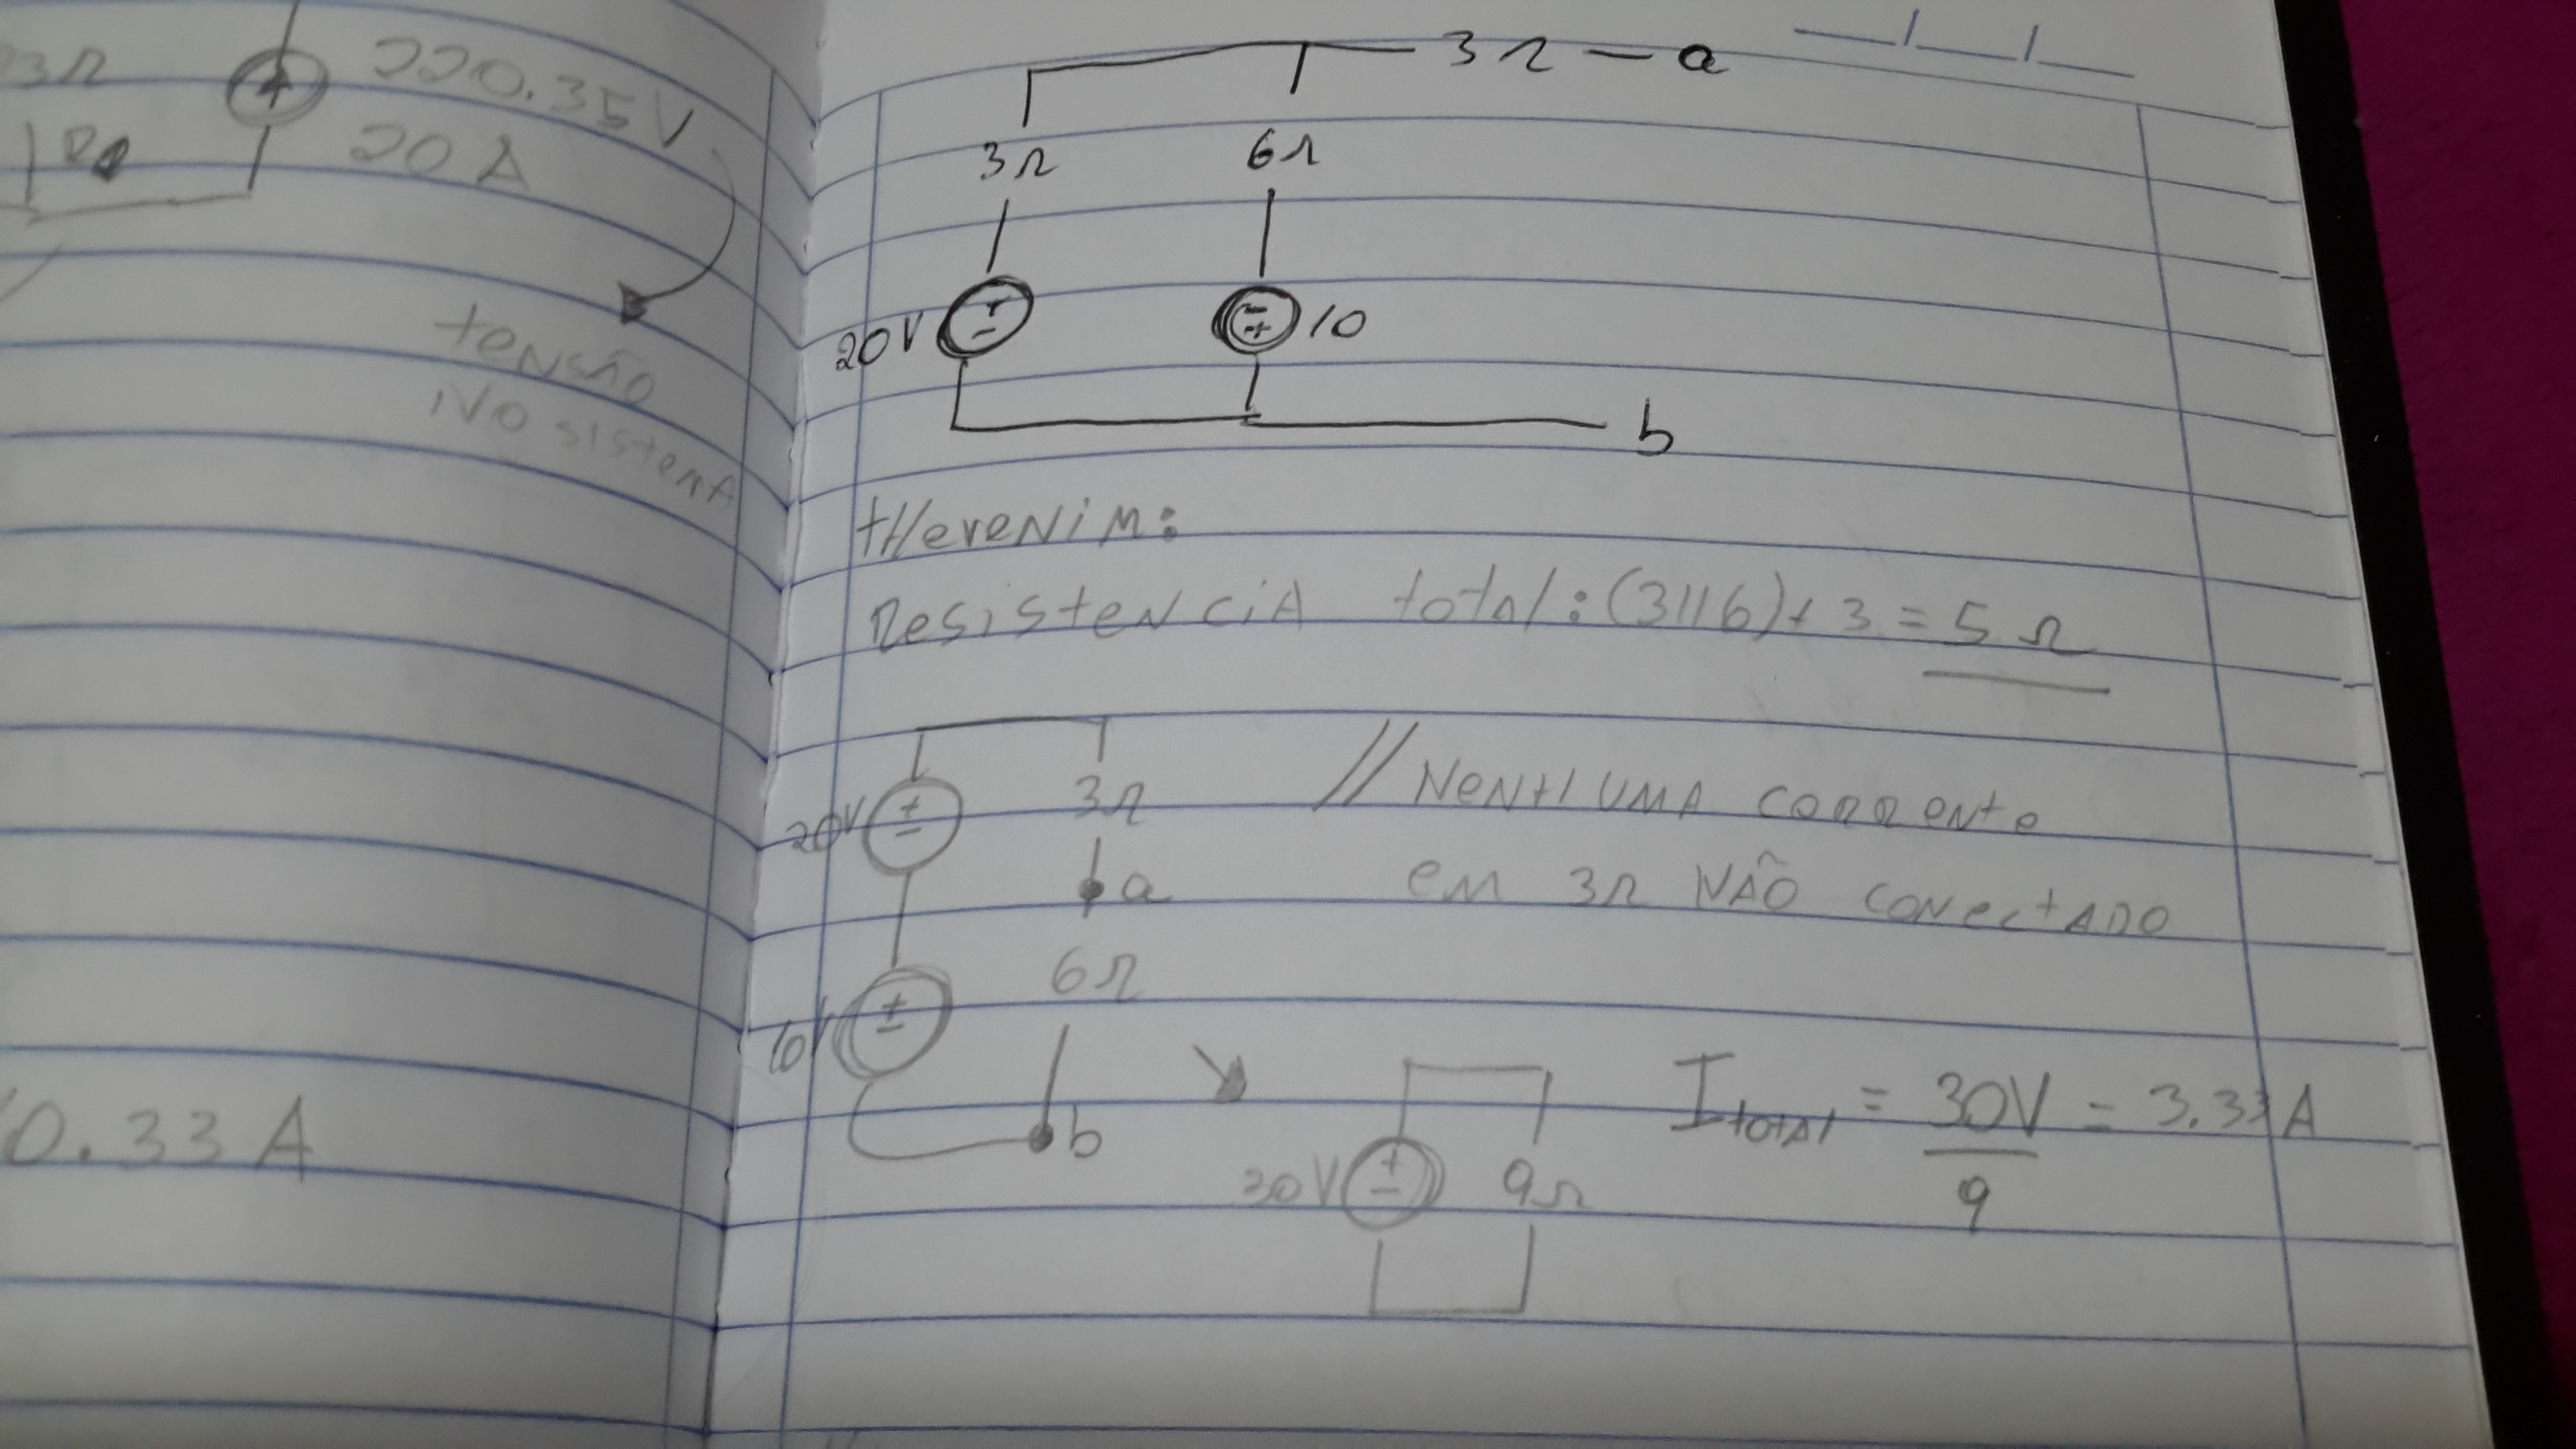 3Ω
220.35V
20 A
tensão
no sistema
0.33 A
3Ω — a
__/__/__
3Ω
6Ω
20V
+
-
-
+
10
b
tHevenim:
Resistencia total: (3||6)+3 = 5Ω
20V
+
-
3Ω
a
// NenHuma corrente
em 3Ω não conectado
10V
+
-
6Ω
b
30V
+
-
9Ω
Itotal = 30V = 3.33 A
9